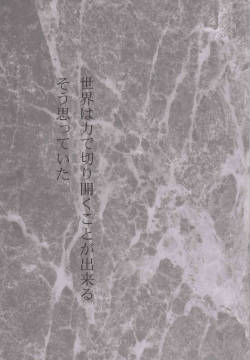 世界は力で切り開くことが出来る
そう思っていた